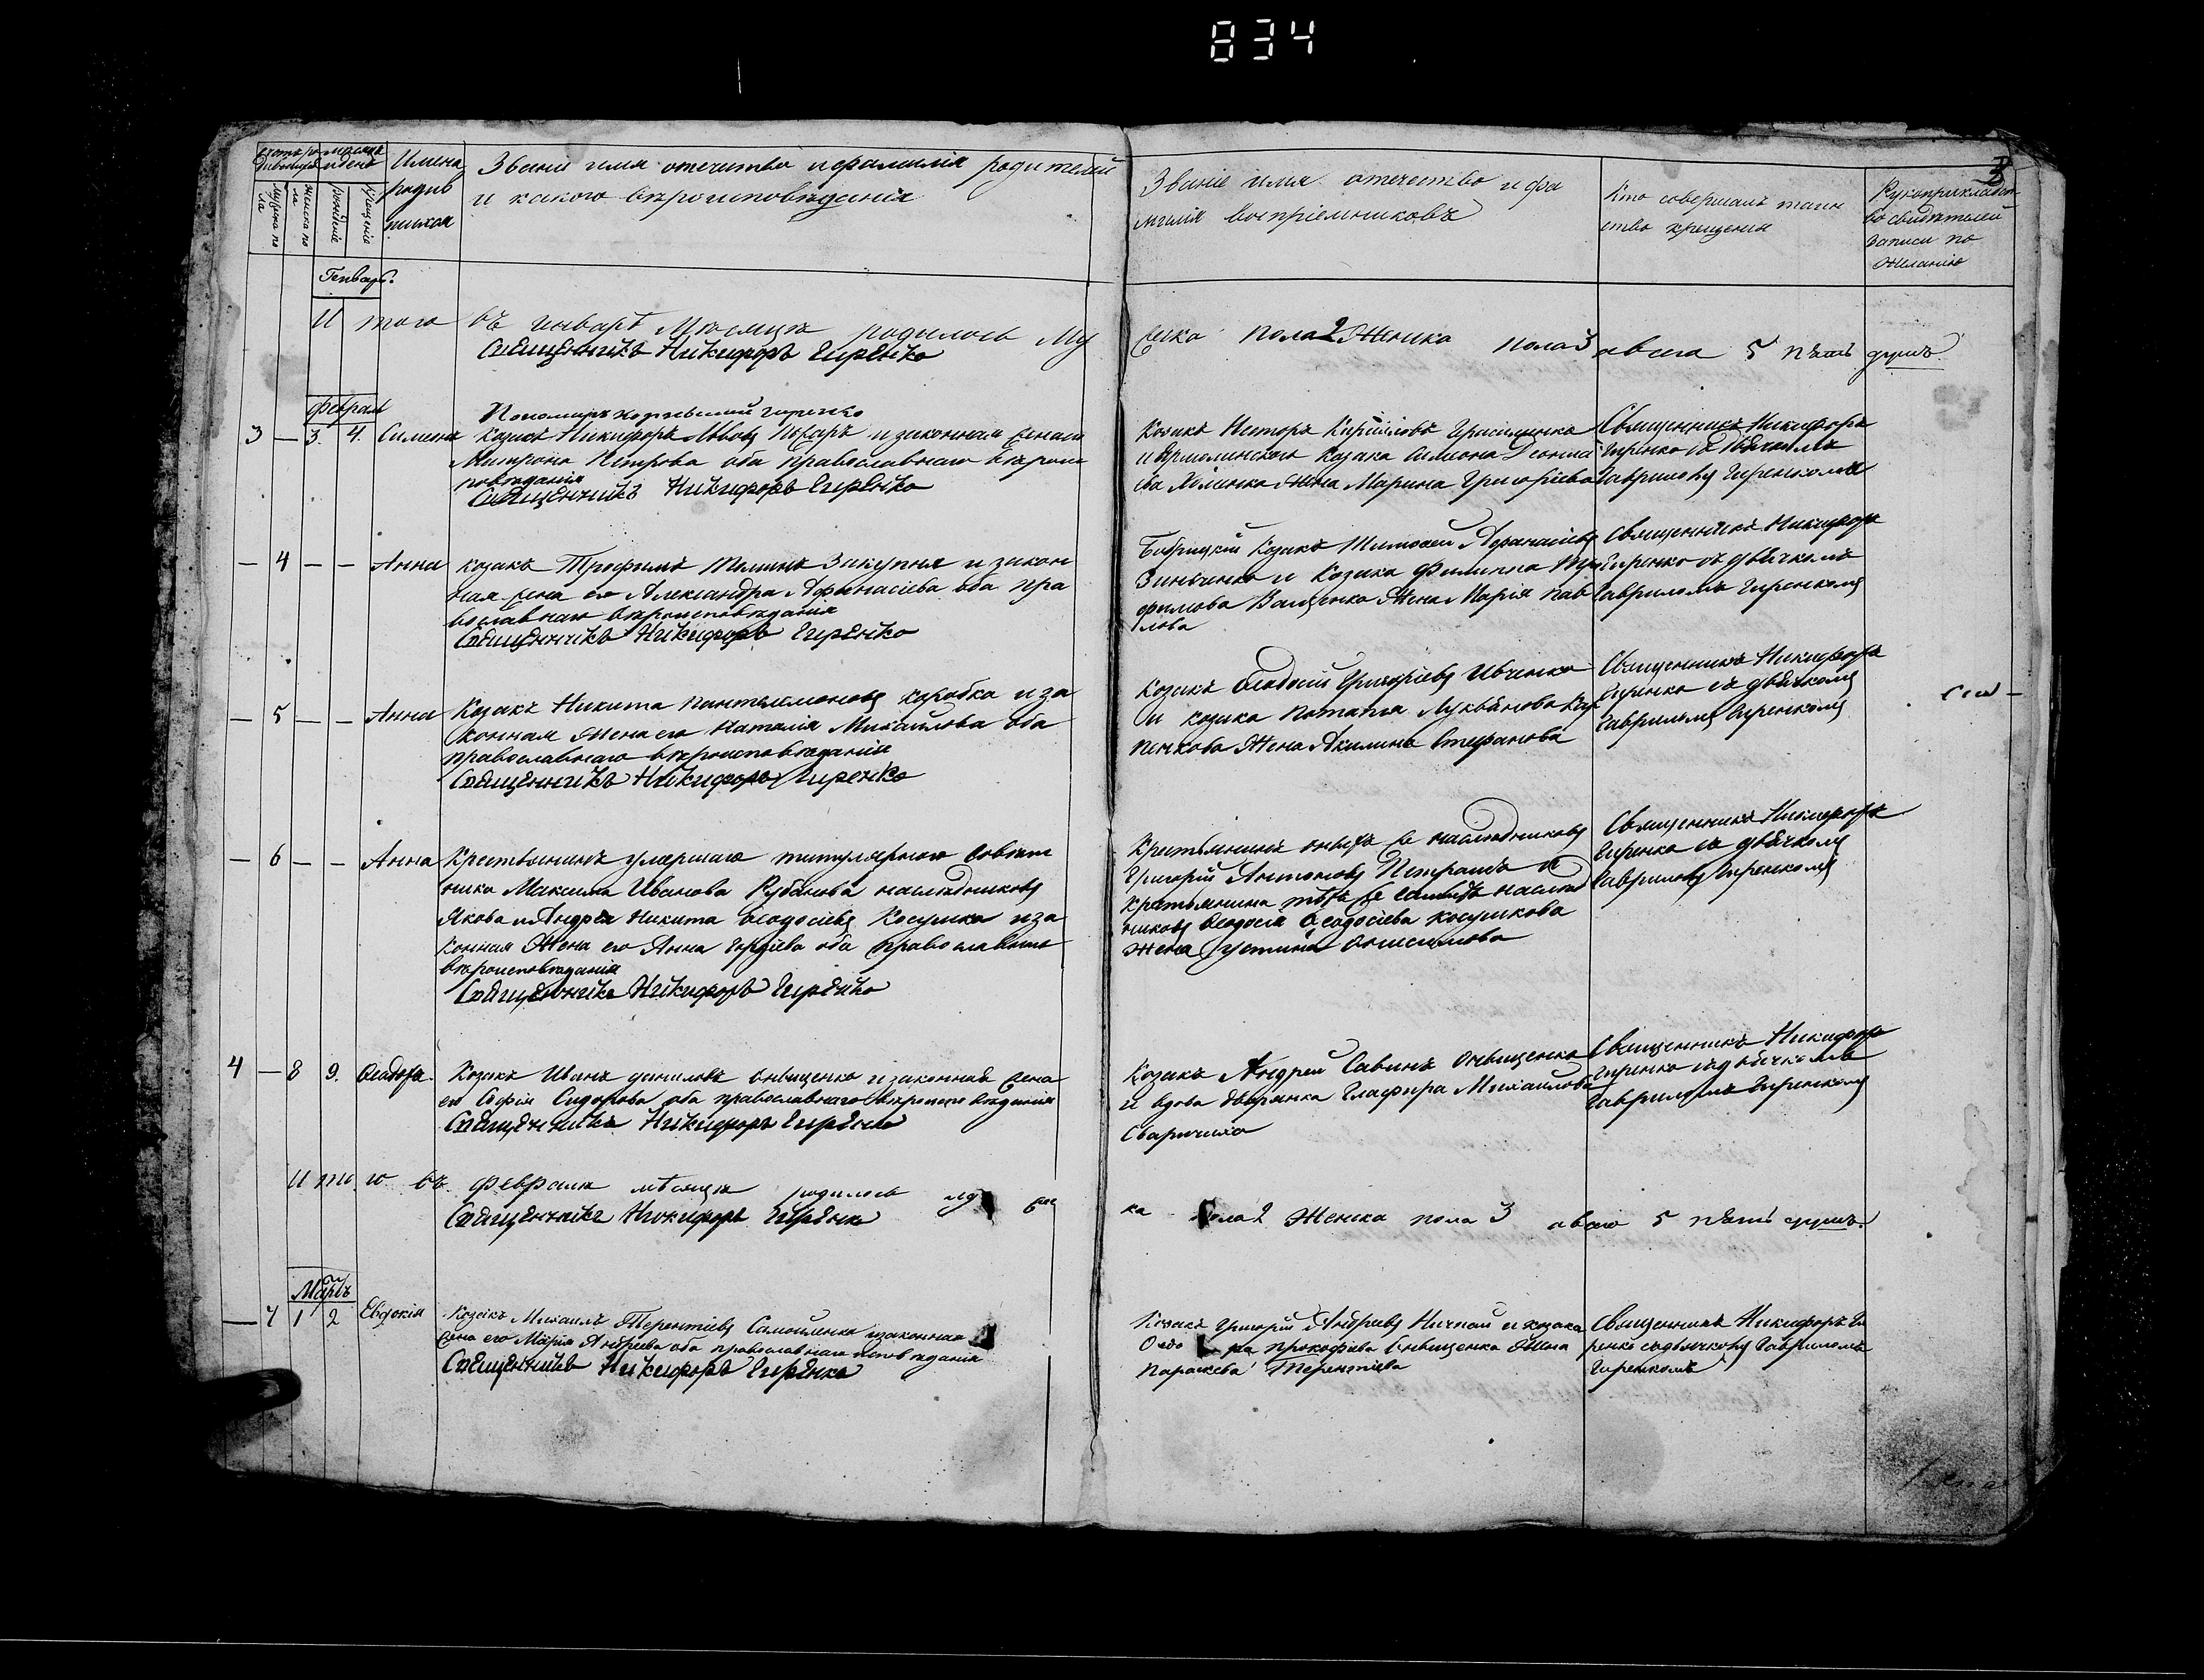 834
3
Счетъ ро
дившихся
Мужеска по
ла
Женска по
ла
месяцъ
и день
рожденія
Крещенія
Имена
родив
шихся
Званіе имя отечество и фамилія родителей
и какого вѣроисповѣданія
Званіе имя отечество и фа
милія воспріемниковъ
Кто совершалъ таин
ство крещенія
Рукоприкладст
во свидѣтелей
записи по
желанію
Генварь.
И того въ генварѣ Мѣсяцѣ родилось Му
жеска пола 2 Женска пола 3 а всего 5 пять душъ
Священникъ Никифоръ Гиренко
Пономарь Гиренко
Феврал
3 — 3. 4. Симеонъ
Козакъ Никифоръ и законная жена его
Матрона Петрова оба православнаго вѣроис
повѣданія
Священникъ Никифоръ Гиренко
Козакъ Несторъ Кириловъ Герасименко
и Козака Симеона Леонтіе
ва жена Марина Григоріева
Священникъ Никифоръ
Гиренко съ дьячкомъ
Гавриломъ Гиренкомъ
— 4 — — Анна
козакъ Трофимъ Закупня и закон
ная жена его Александра Афанасіева оба пра
вославнаго вѣроисповѣданія
Священникъ Никифоръ Гиренко
Козакъ Тимофей Афанасіевъ
Зинченко и Козака Филиппа Тро
фимова Ващенка Жена Марія Пав
лова
Священникъ Никифоръ
Гиренко съ дьячкомъ
Гавриломъ Гиренкомъ
— 5 — — Анна
Козакъ Никита Пантелимоновъ Коробка и за
конная жена его Наталія Михайлова оба
православнаго вѣроисповѣданія
Священникъ Никифоръ Гиренко
Козакъ Григоріевъ Ивченко
и козака Потапа Лукьянова Кар
пенкова Жена Акилина Стефанова
Священникъ Никифоръ
Гиренко съ дьячкомъ
Гавриломъ Гиренкомъ
— 6 — — Анна
Крестьянинъ умершаго титулярнаго Совѣт
ника Максима Иванова Рубанова наслѣдниковъ
Якова и Андрея Никита Ѳеодосіевъ Косушка и за
конная Жена его Анна Гордіева оба православнаго
вѣроисповѣданія
Священникъ Никифоръ Гиренко
Крестьянинъ оныхъ же наслѣдниковъ
Григорій Антоновъ Петрашъ и
Крестьянина тѣхъ же самыхъ наслѣд
никовъ Ѳеодосія Ѳеодосіева Косушкова
жена Устинія Онисимова
Священникъ Никифоръ
Гиренко съ дьячкомъ
Гавриломъ Гиренкомъ
4 — 8 9. Ѳеодоръ
Козакъ Иванъ Даниловъ Онищенко и законная жена
его Софія Сидорова оба православнаго вѣроисповѣданія
Священникъ Никифоръ Гиренко
Козакъ Андрей Савинъ Онищенко
и вдова дворянка Глафира Михайлова
Сваричина
Священникъ Никифоръ
Гиренко съ дьячкомъ
Гавриломъ Гиренкомъ
И того въ Февралѣ мѣсяцѣ родилось муже
ка пола 2 Женска пола 3 а всего 5 пять душъ.
Священникъ Никифоръ Гиренко
Мартъ
— 7 1 2 Евдокія
Козакъ Михаилъ Терентіевъ Самойленко и законная
жена его Марія Андреева оба православнаго исповѣданія
Священникъ Никифоръ Гиренко
Козакъ Григорій Андреевъ Ничпай и козака
Ѳедо ра Прокофіева Онищенка Жена
Параскева Терентіева
Священникъ Никифоръ Ги
ренко съ дьячкомъ Гавриломъ
Гиренкомъ